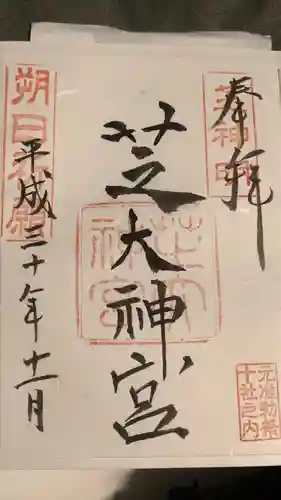 奉拝
芝神明
元准勅祭
十社之内
芝大神宮
芝大
神宮
朔日祈願
平成三十年十一月